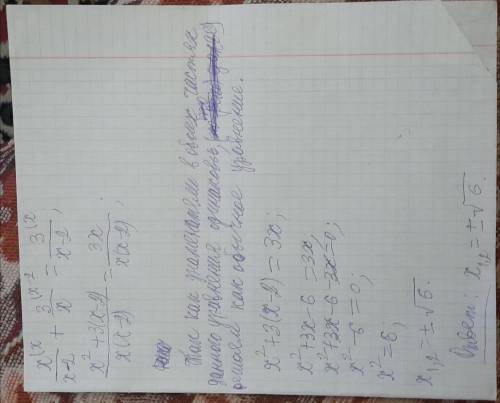 x^(x / x-2 + 3^(x-2 / x = 3^(x / x-2 ;
x²+3(x-2) / x(x-2) = 3x / x(x-2) ;
Так как знаменатели в обеих частях
данного уравнения одинаковы,
решаем как обычное уравнение.
x²+3(x-2) = 3x;
x²+3x-6 = 3x;
x²+3x-6-3x=0;
x²-6=0;
x²=6;
x1,2=±√6.
Ответ: x1,2=±√6.